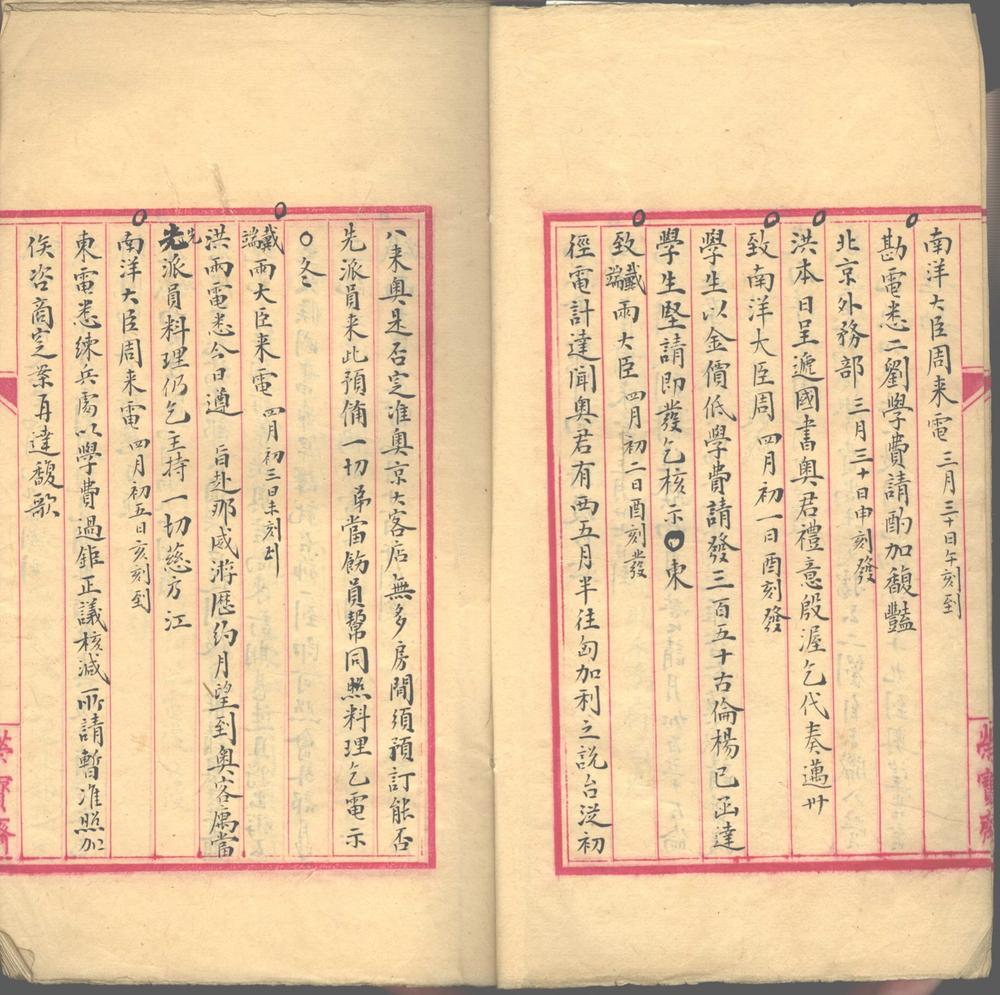 南洋大臣周来電 三月三十日午刻到
勘電悉二劉學費請酌加馥豔
北京外務部 三月三十日申刻發
洪本日呈遞國書奥君禮意殷渥乞代奏邁卅
致南洋大臣周 四月初一日酉刻發
學生以金價低學費請發三百五十古倫楊已函達
學生堅請即發乞核示 東
致戴端兩大臣 四月初二日酉刻發
徑電計達聞奥君有西五月半往匈加利之說台從初
八来奥是否定准奥京大客店無多房間須預訂能否
先派員来此預備一切弟當飭員幫同照料理乞電示
冬
戴端兩大臣来電 四月初三日未刻到
洪兩電悉今日遵 旨赴那威游歷約月望到奥客寓當
先先派員料理仍乞主持一切慈方江
南洋大臣周来電 四月初五日亥刻到
東電悉練兵處以學費過鉅正議核減所請暫准照加
俟咨商定案再達馥歌
榮寶齋
榮寶齋